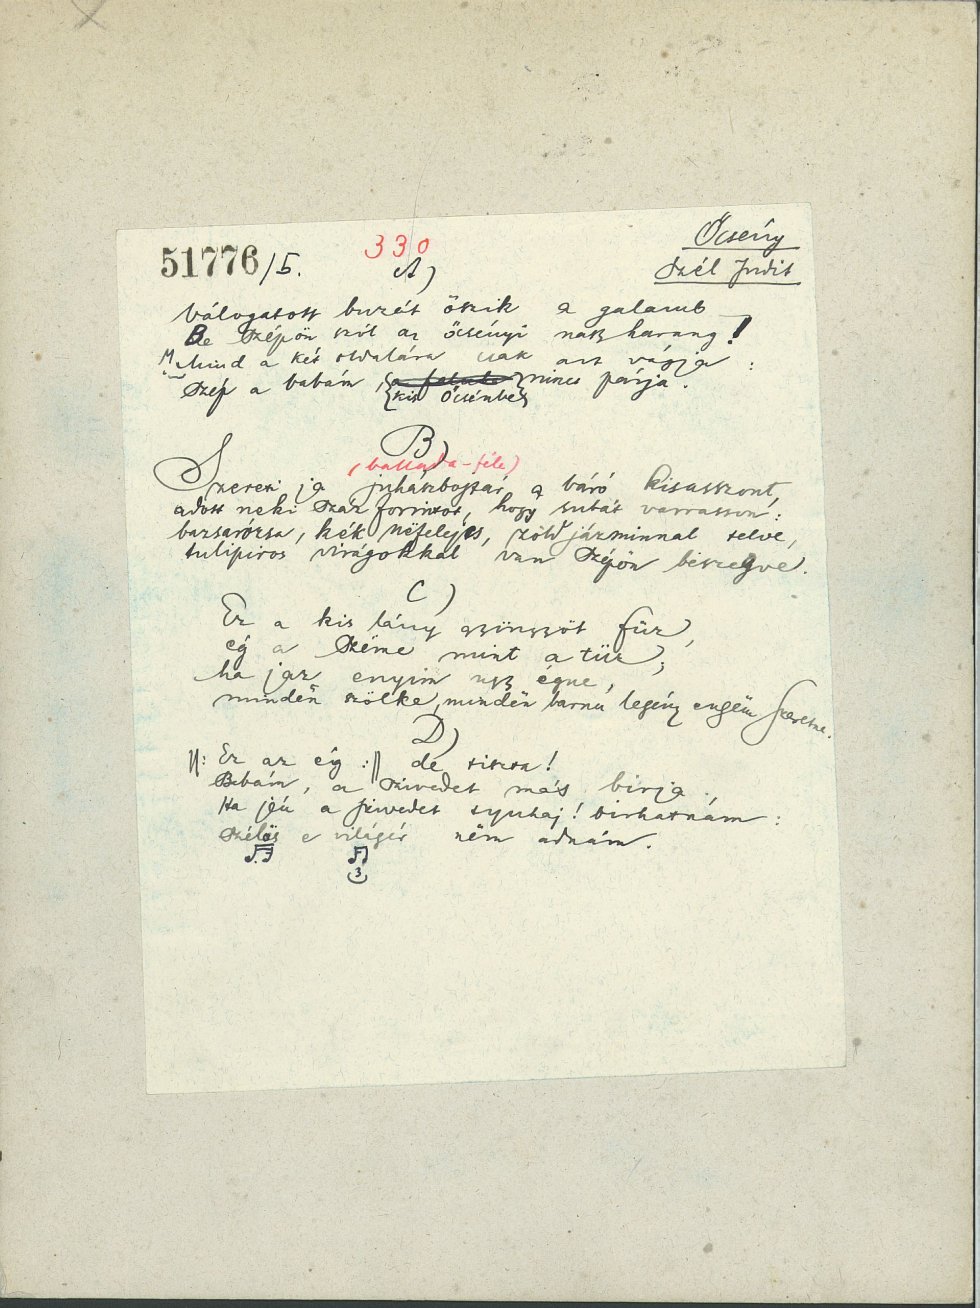 Őcsény
51776/5.
330
Szél Judit
A)
Válogatott buzát őszik a galamb
Be szépön szól az őcsényi nagy harang!
Mind a két oldalára csak azt vágja:
Szép a babám, kis Őcsénbe nincs párja.
B)
(ballada-féle)
Szereti ja juhászbojtár a báró kisasszont,
adott neki száz forintot, hogy subát varrasson:
bazsarózsa, kék nefelejcs, zöld jázminnal telve,
tulipiros virágokkal van szépön beszegve.
C)
Ez a kis lány gyöngyöt fűz,
ég a széme mint a tűz;
ha jaz enyim úgy égne,
mindën szőlke, mindën barna legény engëm szeretne.
D)
||: Ez az ég :|| de tiszta!
Babám, a szivedet más birja.
Ha jén a szivedet tyuhaj! birhatnám:
Szélös e világér nëm adnám.
3